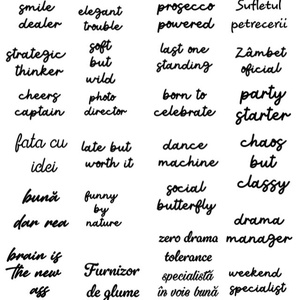 smile
dealer
strategic
thinker
cheers
captain
fata cu
idei
bună
dar rea
brain is
The new
ass
elegant
trouble
soft
but
wild
photo
director
late but
worth it
funny
by
nature
Furnizor
de glume
prosecco
powered
last one
standing
born to
celebrate
dance
machine
social
butterfly
zero drama
tolerance
specialistă
în voie bună
Sufletul
petrecerii
Zâmbet
oficial
party
starter
chaos
but
classy
drama
manager
weekend
specialist